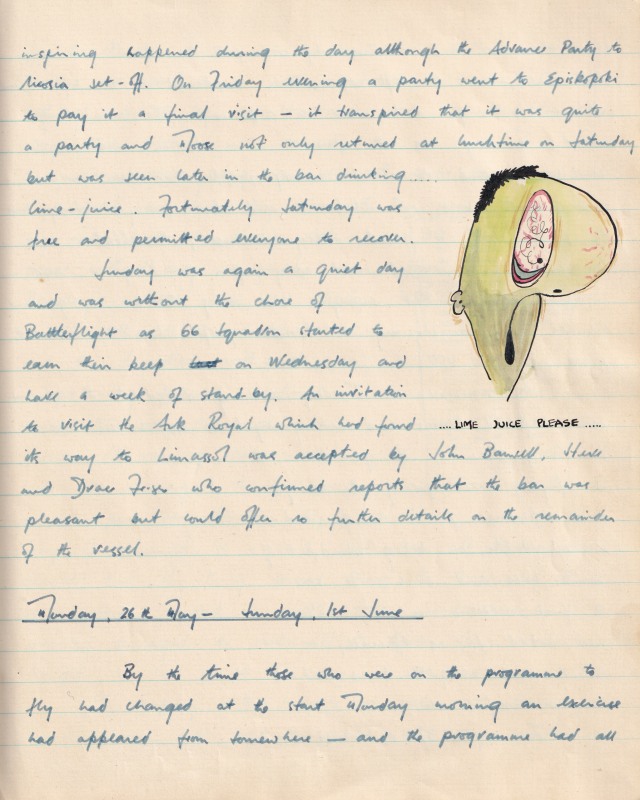 inspiring happened during the day although the Advance Party to
Nicosia set-off. On Friday evening a party went to Episkopski
to pay it a final visit — it transpired that it was quite
a party and Moose not only returned at lunchtime on Saturday
but was seen later in the bar drinking.....
lime-juice. Fortunately Saturday was
free and permitted everyone to recover.
Sunday was again a quiet day
and was without the chore of
Battleflight as 66 Squadron started to
earn their keep on Wednesday and
have a week of stand-by. An invitation
to visit the Ark Royal which had found
.... LIME JUICE PLEASE .....
its way to Limassol was accepted by John
and who confirmed reports that the bar was
pleasant but could offer no further details on the remainder
of the vessel.
Monday, 26th May — Sunday, 1st June
By the time those who were on the programme to
fly had changed at the start Monday morning an exercise
had appeared from somewhere — and the programme had all